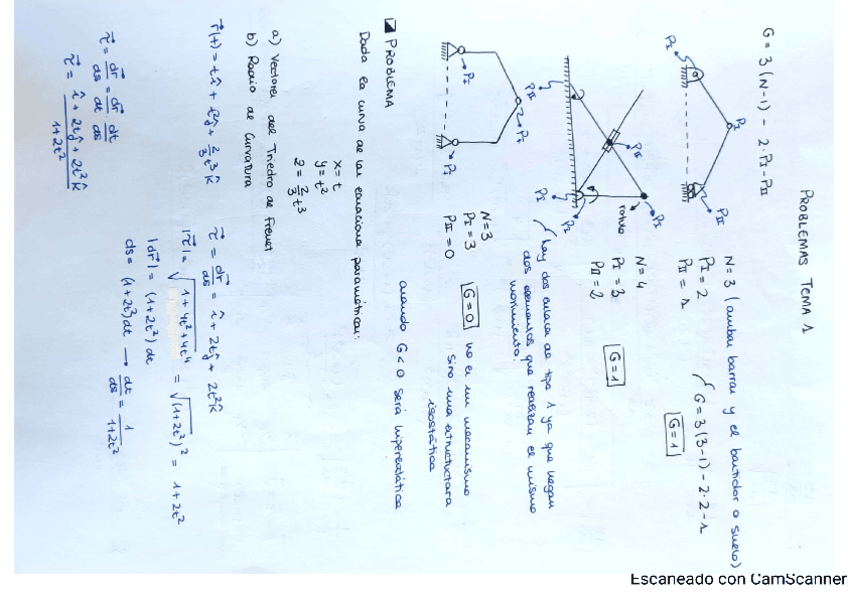 PROBLEMAS TEMA 1
G = 3(N-1) - 2·PI - PII
N=3 (ambas barras y el bastidor o suelo)
PI = 2
PII = 1
G = 3(3-1) - 2·2 - 1
G = 1
PI
PI
PII
N = 4
PI = 3
PII = 2
G = 1
PI
rótula
PII
PII
PI
PI
Hay dos enlaces de tipo 1 ya que llegan
dos elementos que realizan el mismo
movimiento.
N=3
PI = 3
PII = 0
G = 0
no es un mecanismo
sino una estructura
isostática
cuando G < 0 será hiperestática
PI
PI
PI
PROBLEMA
Dada la curva de las ecuaciones paramétricas:
x = t
y = t²
z = 2/3 t³
a) Vectores del Triedro de Frenet
b) Radio de Curvatura
r⃗(t) = t î + t² ĵ + 2/3 t³ k̂
τ⃗ = dr⃗/ds = î + 2t ĵ + 2t² k̂
|τ⃗| = √(1 + 4t² + 4t⁴) = √(1+2t²)² = 1 + 2t²
|dr⃗| = (1+2t²) dt
ds = (1+2t²) dt → dt/ds = 1/(1+2t²)
τ⃗ = dr⃗/ds = dr⃗/dt dt/ds
τ⃗ = (î + 2t ĵ + 2t² k̂)/(1+2t²)
Escaneado con CamScanner